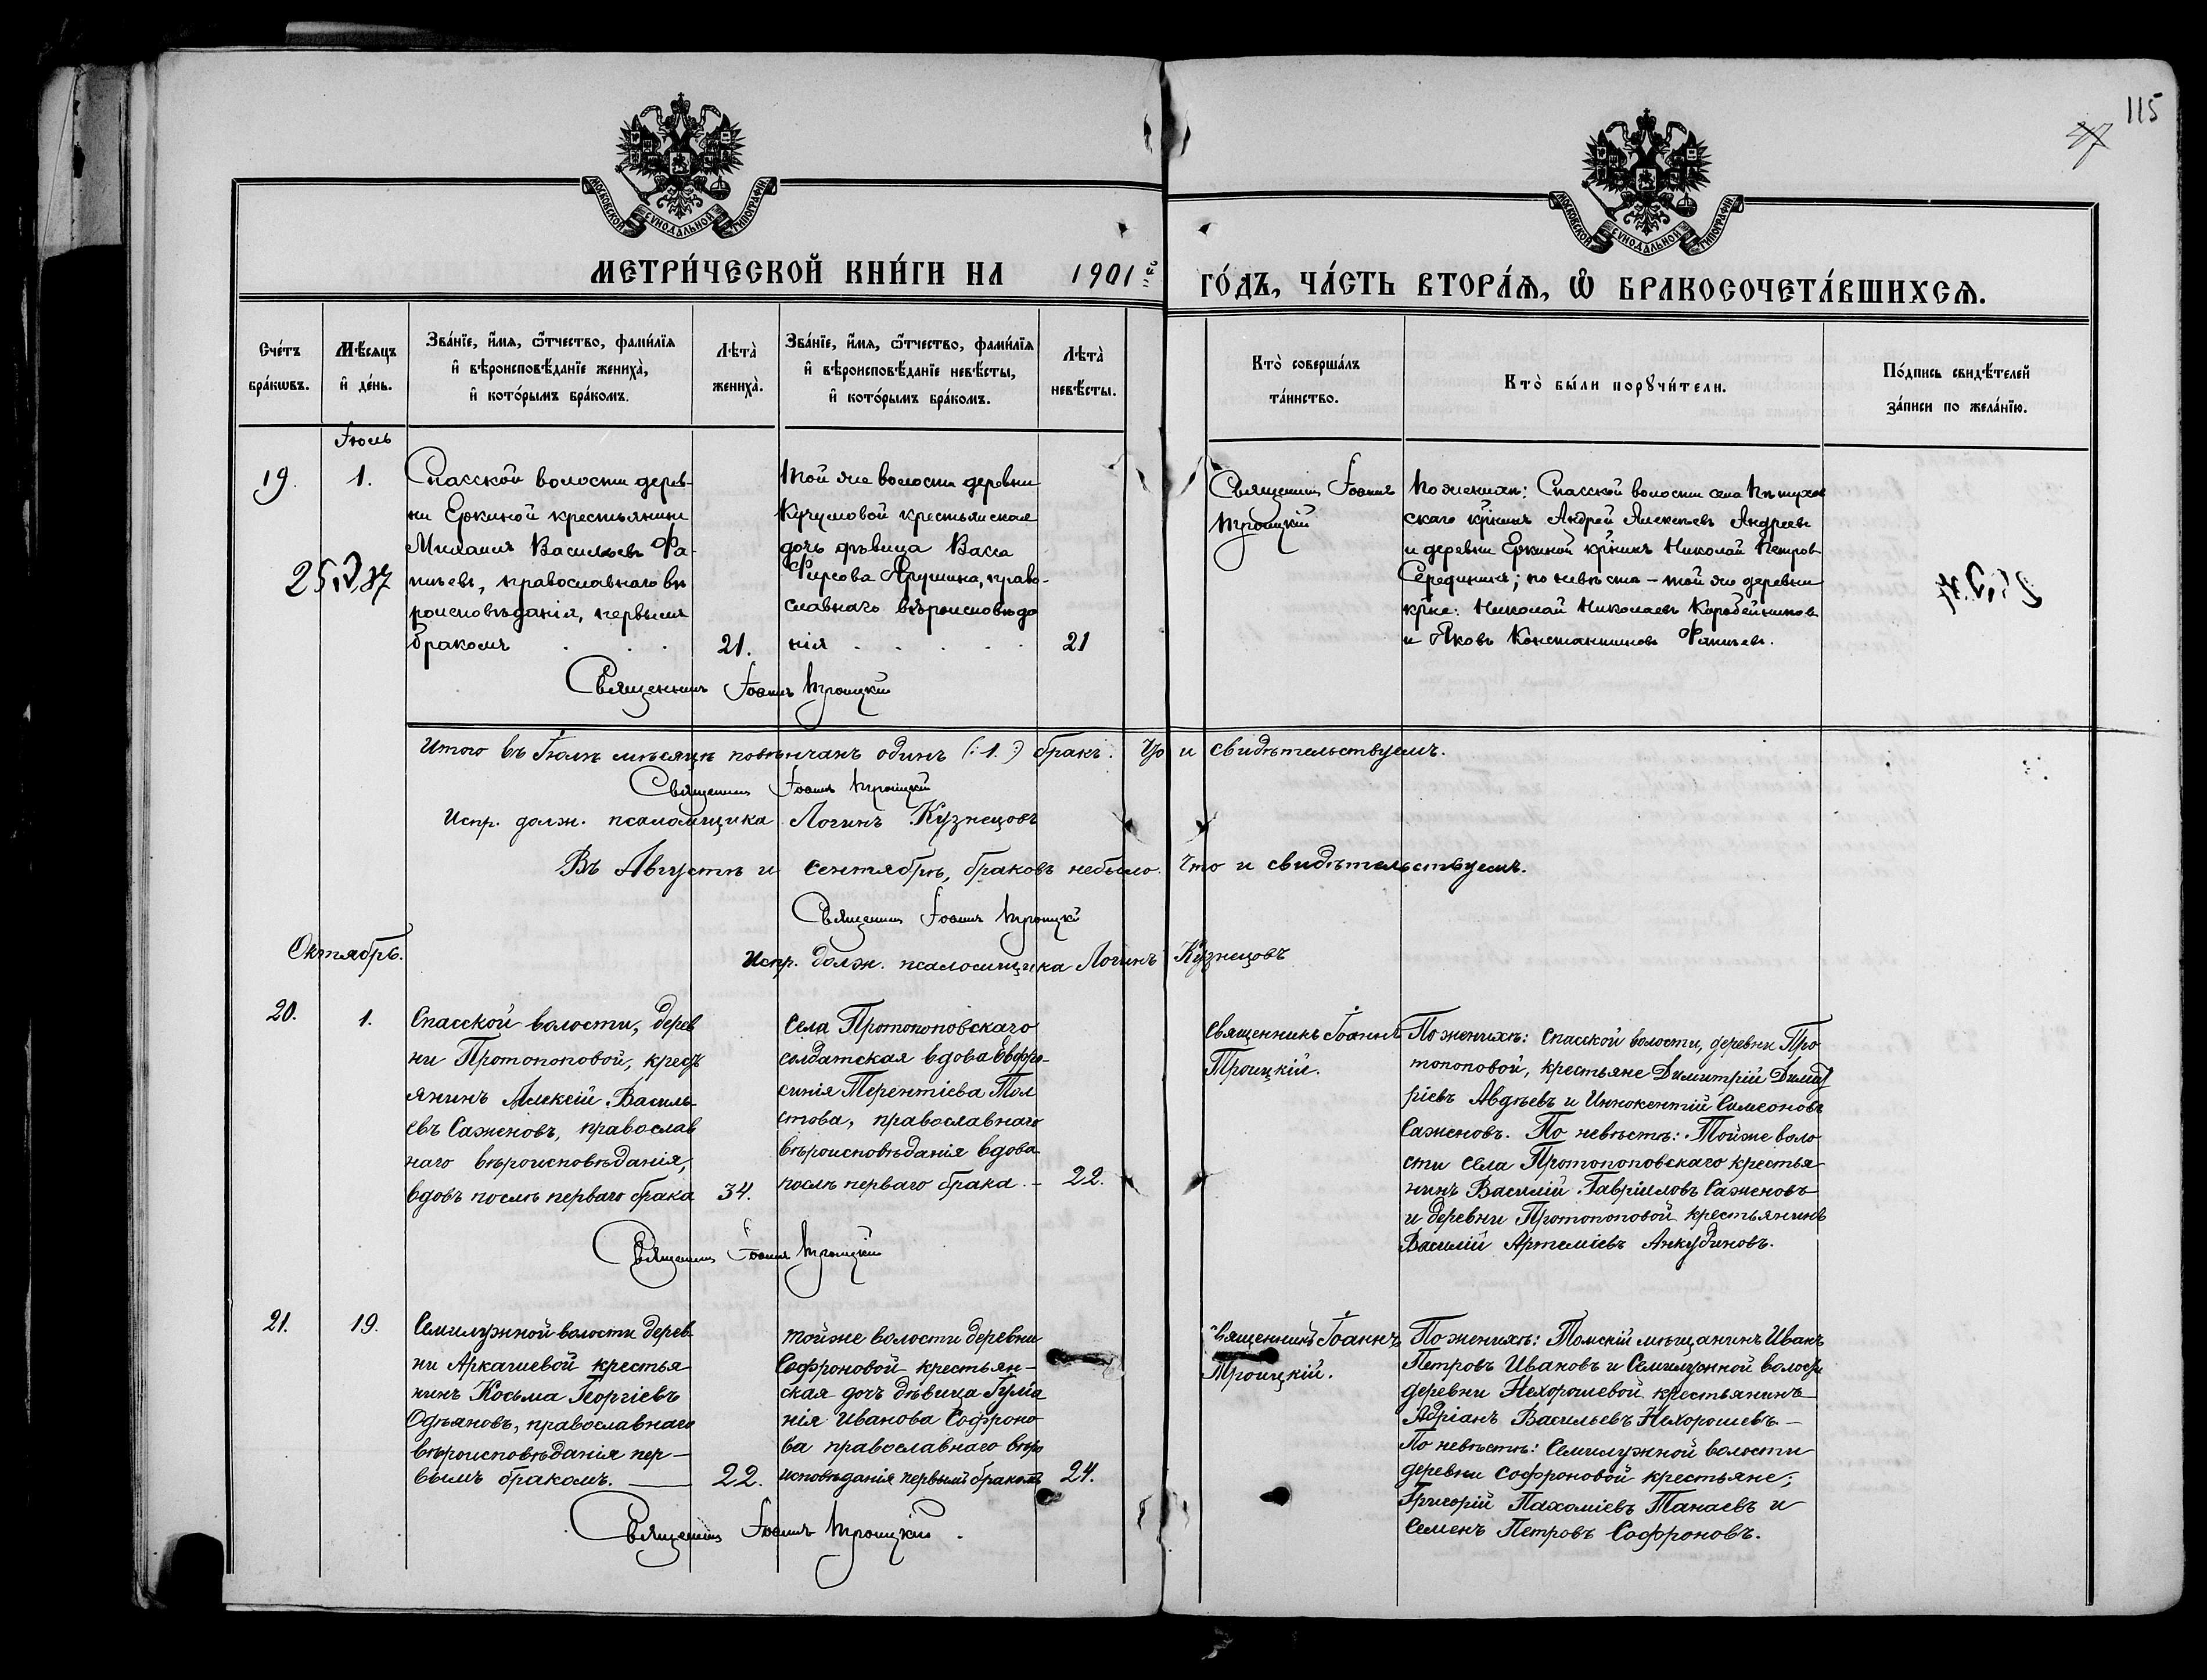 115
МОСКОВСКОЙ СУНОДАЛЬНОЙ ТИПОГРАФІИ
МОСКОВСКОЙ СУНОДАЛЬНОЙ ТИПОГРАФІИ
МЕТРИ́ЧЕСКОЙ КНИ́ГИ НА 1901 ГО́ДЪ, ЧА́СТЬ ВТОРА́Ѧ, Ѡ БРАКОСОЧЕТА́ВШИХСѦ.
Сче́тъ
бра́кѡвъ.
Мѣ́сѧцъ
и҆ де́нь.
Зва́нїе, и҆́мѧ, ѻ҆́тчество, фами́лїѧ
и҆ вѣроисповѣ́данїе жениха̀,
и҆ кото́рымъ бра́комъ.
Лѣта̀
жениха̀.
Зва́нїе, и҆́мѧ, ѻ҆́тчество, фами́лїѧ
и҆ вѣроисповѣ́данїе невѣ́сты,
и҆ кото́рымъ бра́комъ.
Лѣта̀
невѣ́сты.
Кто̀ соверша́лъ
та́инство.
Кто̀ бы́ли порꙋчи́тели.
По́дпись свидѣ́телей
за́писи по жела́нїю.
Іюль
19.
1.
Спасской волости дерев-
ни Еркиной крестьянинъ
Михаилъ Васильевъ Фа-
тѣевъ, православнаго вѣ
роисповѣданія, первымъ
бракомъ
21.
той же волости деревни
Кучумовой крестьянская
дочь дѣвица Васса
Фирсова Ярушина, право-
славнаго вѣроисповѣда
нія
21
Священникъ Іоаннъ
Троицкій
По женихѣ: Спасской волости села Пѣтухов
скаго кр̃нинъ Андрей Алексѣевъ Андреевъ
и деревни Еркиной кр̃нинъ Николай Петровъ
Серединъ; по невѣстѣ – той же деревни
кр̃не: Николай Николаевъ Коробейниковъ
и Яковъ Константиновъ Фатѣевъ.
Священникъ Іоаннъ Троицкій
Итого въ Іюлѣ мѣсяцѣ повѣнчанъ одинъ (:1.:) бракъ. Что и свидѣтельствуемъ.
Священникъ Іоаннъ Троицкій
Испр. долж. псаломщика Логинъ Кузнецовъ
Въ Августѣ и сентябрѣ, браковъ небыло. Что и свидѣтельствуемъ.
Священникъ Іоаннъ Троицкій
Октябрь.
Испр. долж. псаломщика Логинъ Кузнецовъ
20.
1.
Спасской волости, дерев
ни Протопоповой, крестъ
янинъ Алексій Василь-
евъ Саженовъ, православ
наго вѣроисповѣданія,
вдовъ послѣ перваго брака
34.
Села Протопоповскаго
солдатская вдова Евфро-
синія Терентіева Тол
стова, православнаго
вѣроисповѣданія вдова
послѣ перваго брака. –
22.
Священникъ Іоаннъ
Троицкій.
По женихѣ: Спасской волости, деревни Про
топоповой, крестьяне Димитрій Димит
ріевъ Авдѣевъ и Иннокентій Симеоновъ
Саженовъ. По невѣстѣ: Тойже воло
сти села Протопоповскаго крестья
нинъ Василій Гавріиловъ Саженовъ
и деревни Протопоповой крестьянинъ
Василій Артеміевъ Анкудиновъ.
Священникъ Іоаннъ Троицкій
21.
19.
Семилужной волости дерев-
ни Аркашевой крестья
нинъ Косьма Георгіевъ
Одѣяновъ, православнаго
вѣроисповѣданія пер-
вымъ бракомъ.
22.
тойже волости деревни
Софроновой крестьян-
ская дочь дѣвица Іулiа
нія Иванова Софроно
ва православнаго вѣро
исповѣданія первымъ бракомъ
24.
Священникъ Іоаннъ
Троицкій.
По женихѣ: Томскій мѣщанинъ Иванъ
Петровъ Ивановъ и Семилужной волости
деревни Нехорошевой крестьянинъ
Адріанъ Васильевъ Нехорошевъ. –
По невѣстѣ: Семилужной волости
деревни Софроновой крестьяне;
Григорій Пахоміевъ Танаевъ и
Семенъ Петровъ Софроновъ.
Священникъ Іоаннъ Троицкій.